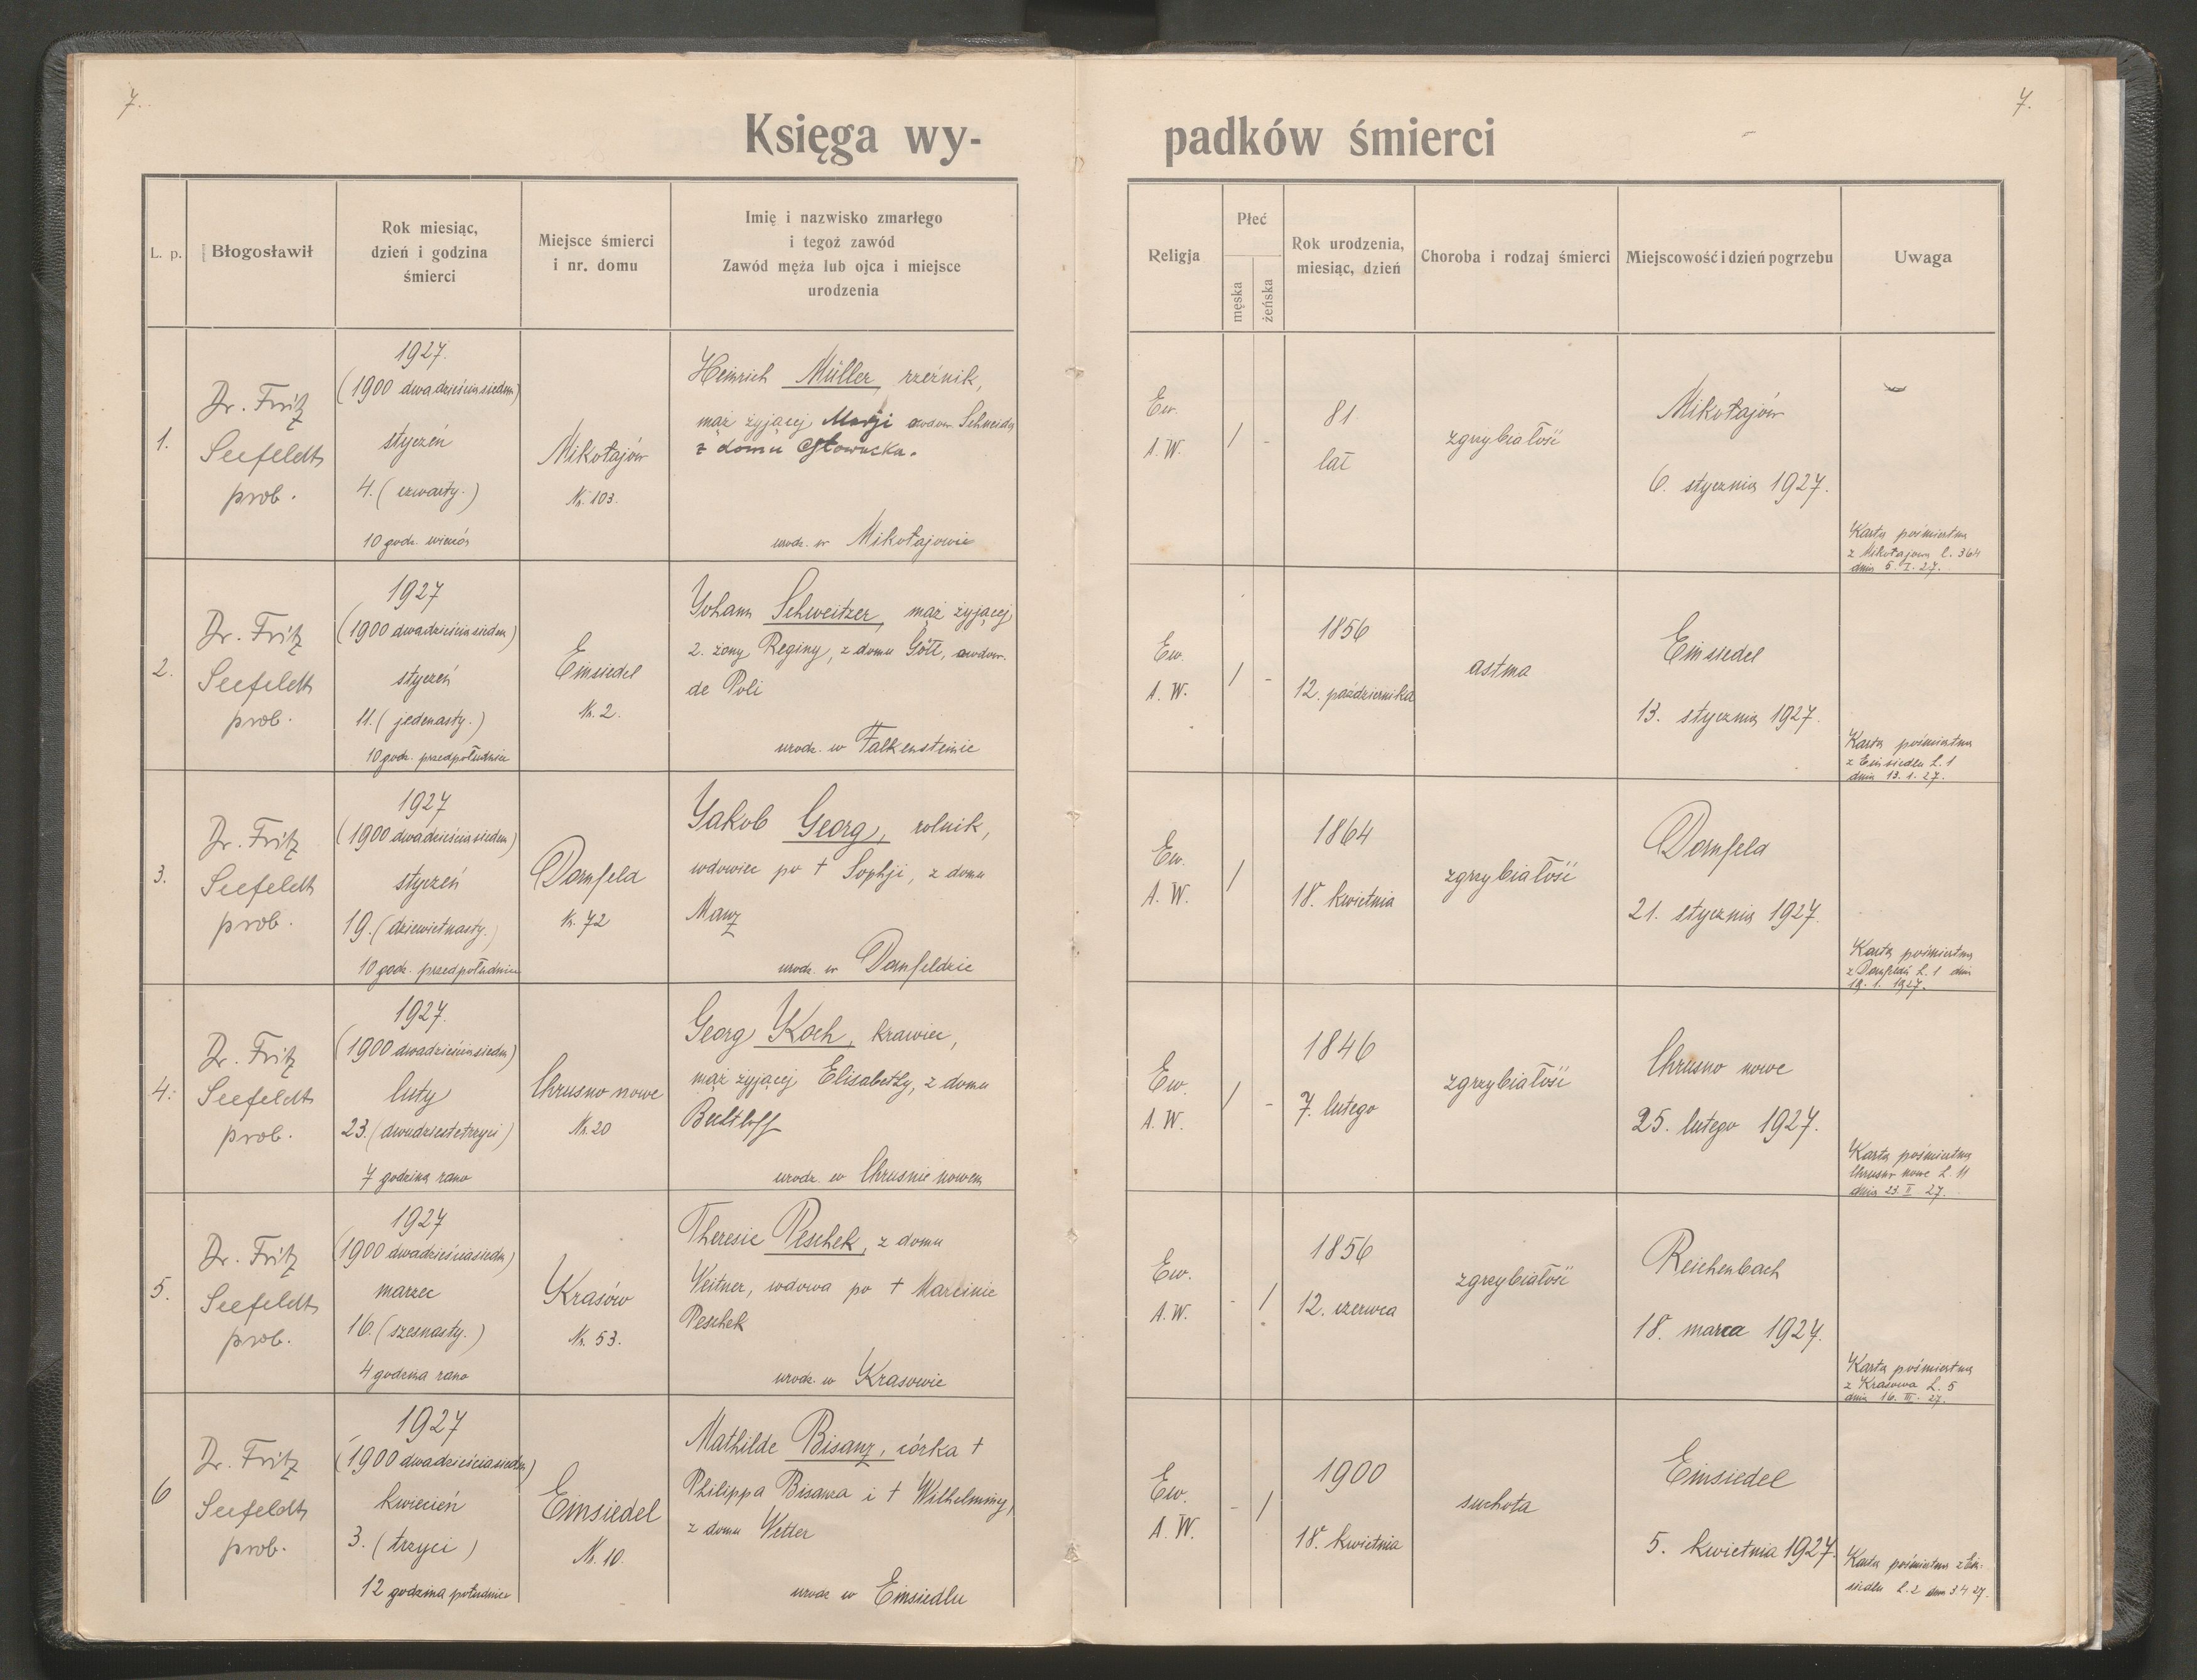 7.
7.
Księga wy-
padków śmierci
L. p.
Błogosławił
Rok miesiąc,
dzień i godzina
śmierci
Miejsce śmierci
i nr. domu
Imię i nazwisko zmarłego
i tegoż zawód
Zawód męża lub ojca i miejsce
urodzenia
Religja
Płeć
męska
żeńska
Rok urodzenia,
miesiąc, dzień
Choroba i rodzaj śmierci
Miejscowość i dzień pogrzebu
Uwaga
1.
Dr. Fritz
Seefeldt
prob.
1927.
(1900 dwadzieścia siedem)
styczeń
4. (czwarty.)
10 godz. wieczór
Mikołajów
Nr. 103.
Heinrich Müller, rzeźnik,
mąż żyjącej Marji owdow. Schneider
z domu Głowacka.
urodz. w Mikołajowie
Ew.
A. W.
/ -
81
lat
zgrzybiałość
Mikołajów
6. stycznia 1927.
Karta pośmiertna
z Mikołajowa l. 364
dnia 5. I. 27.
2.
Dr. Fritz
Seefeldt
prob.
1927
(1900 dwadzieścia siedem)
styczeń
11. (jedenasty.)
10 godz. przedpołudniem
Einsiedel
Nr. 2.
Johann Schweitzer, mąż żyjącej
2. żony Reginy, z domu Gött, owdow.
de Poli
urodz. w Falkensteinie
Ew.
A. W.
/ -
1856
12. października
astma
Einsiedel
13. stycznia 1927.
Karta pośmiertna
z Einsiedlu L. 1
dnia 13. 1. 27.
3.
Dr. Fritz
Seefeldt
prob.
1927
(1900 dwadzieścia siedem)
styczeń
19. (dziewietnasty.)
10 godz. przedpołudniem
Dornfeld
Nr. 72
Jakob Georg, rolnik,
wdowiec po † Sophji, z domu
Manz
urodz. w Dornfeldzie
Ew.
A. W.
/
1864
18. kwietnia
zgrzybiałość
Dornfeld
21. stycznia 1927.
Karta pośmiertna
z Dornfeldu L. 1 dnia
19. 1. 1927.
4.
Dr. Fritz
Seefeldt
prob.
1927.
(1900 dwadzieścia siedem)
luty
23. (dwudziestetrzyci)
7 godzina rano
Chrusno nowe
Nr. 20
Georg Koch, krawiec,
mąż żyjącej Elisabethy, z domu
urodz. w Chrusnie nowem
Ew.
A. W.
/ -
1846
7. lutego
zgrzybiałość
Chrusno nowe
25. lutego 1927.
Karta pośmiertna
Chrusno nowe L. 11
dnia 23. II 27.
5.
Dr. Fritz
Seefeldt
prob.
1927
(1900 dwadzieścia siedem)
marzec
16. (szesnasty.)
4 godzina rano
Krasów
Nr. 53.
Theresie Peschek, z domu
Weitner, wdowa po † Marcinie
Peschek
urodz. w Krasowie
Ew.
A. W.
- /
1856
12. czerwca
zgrzybiałość
Reichenbach
18. marca 1927.
Karta pośmiertna
z Krasowa L. 5
dnia 16. III. 27.
6
Dr. Fritz
Seefeldt
prob.
1927
(1900 dwadzieścia siedem)
kwiecień
3. (trzyci)
12 godzina południe
Einsiedel
Nr. 10.
Mathilde Bisanz, córka †
Philippa Bisanza i † Wilhelminy,
z domu Wetter
urodz w Einsiedlu
Ew.
A. W.
- /
1900
18. kwietnia
suchota
Einsiedel
5. kwietnia 1927
Karta pośmiertna z Ein-
siedlu L. 2 dnia 3.4 27.